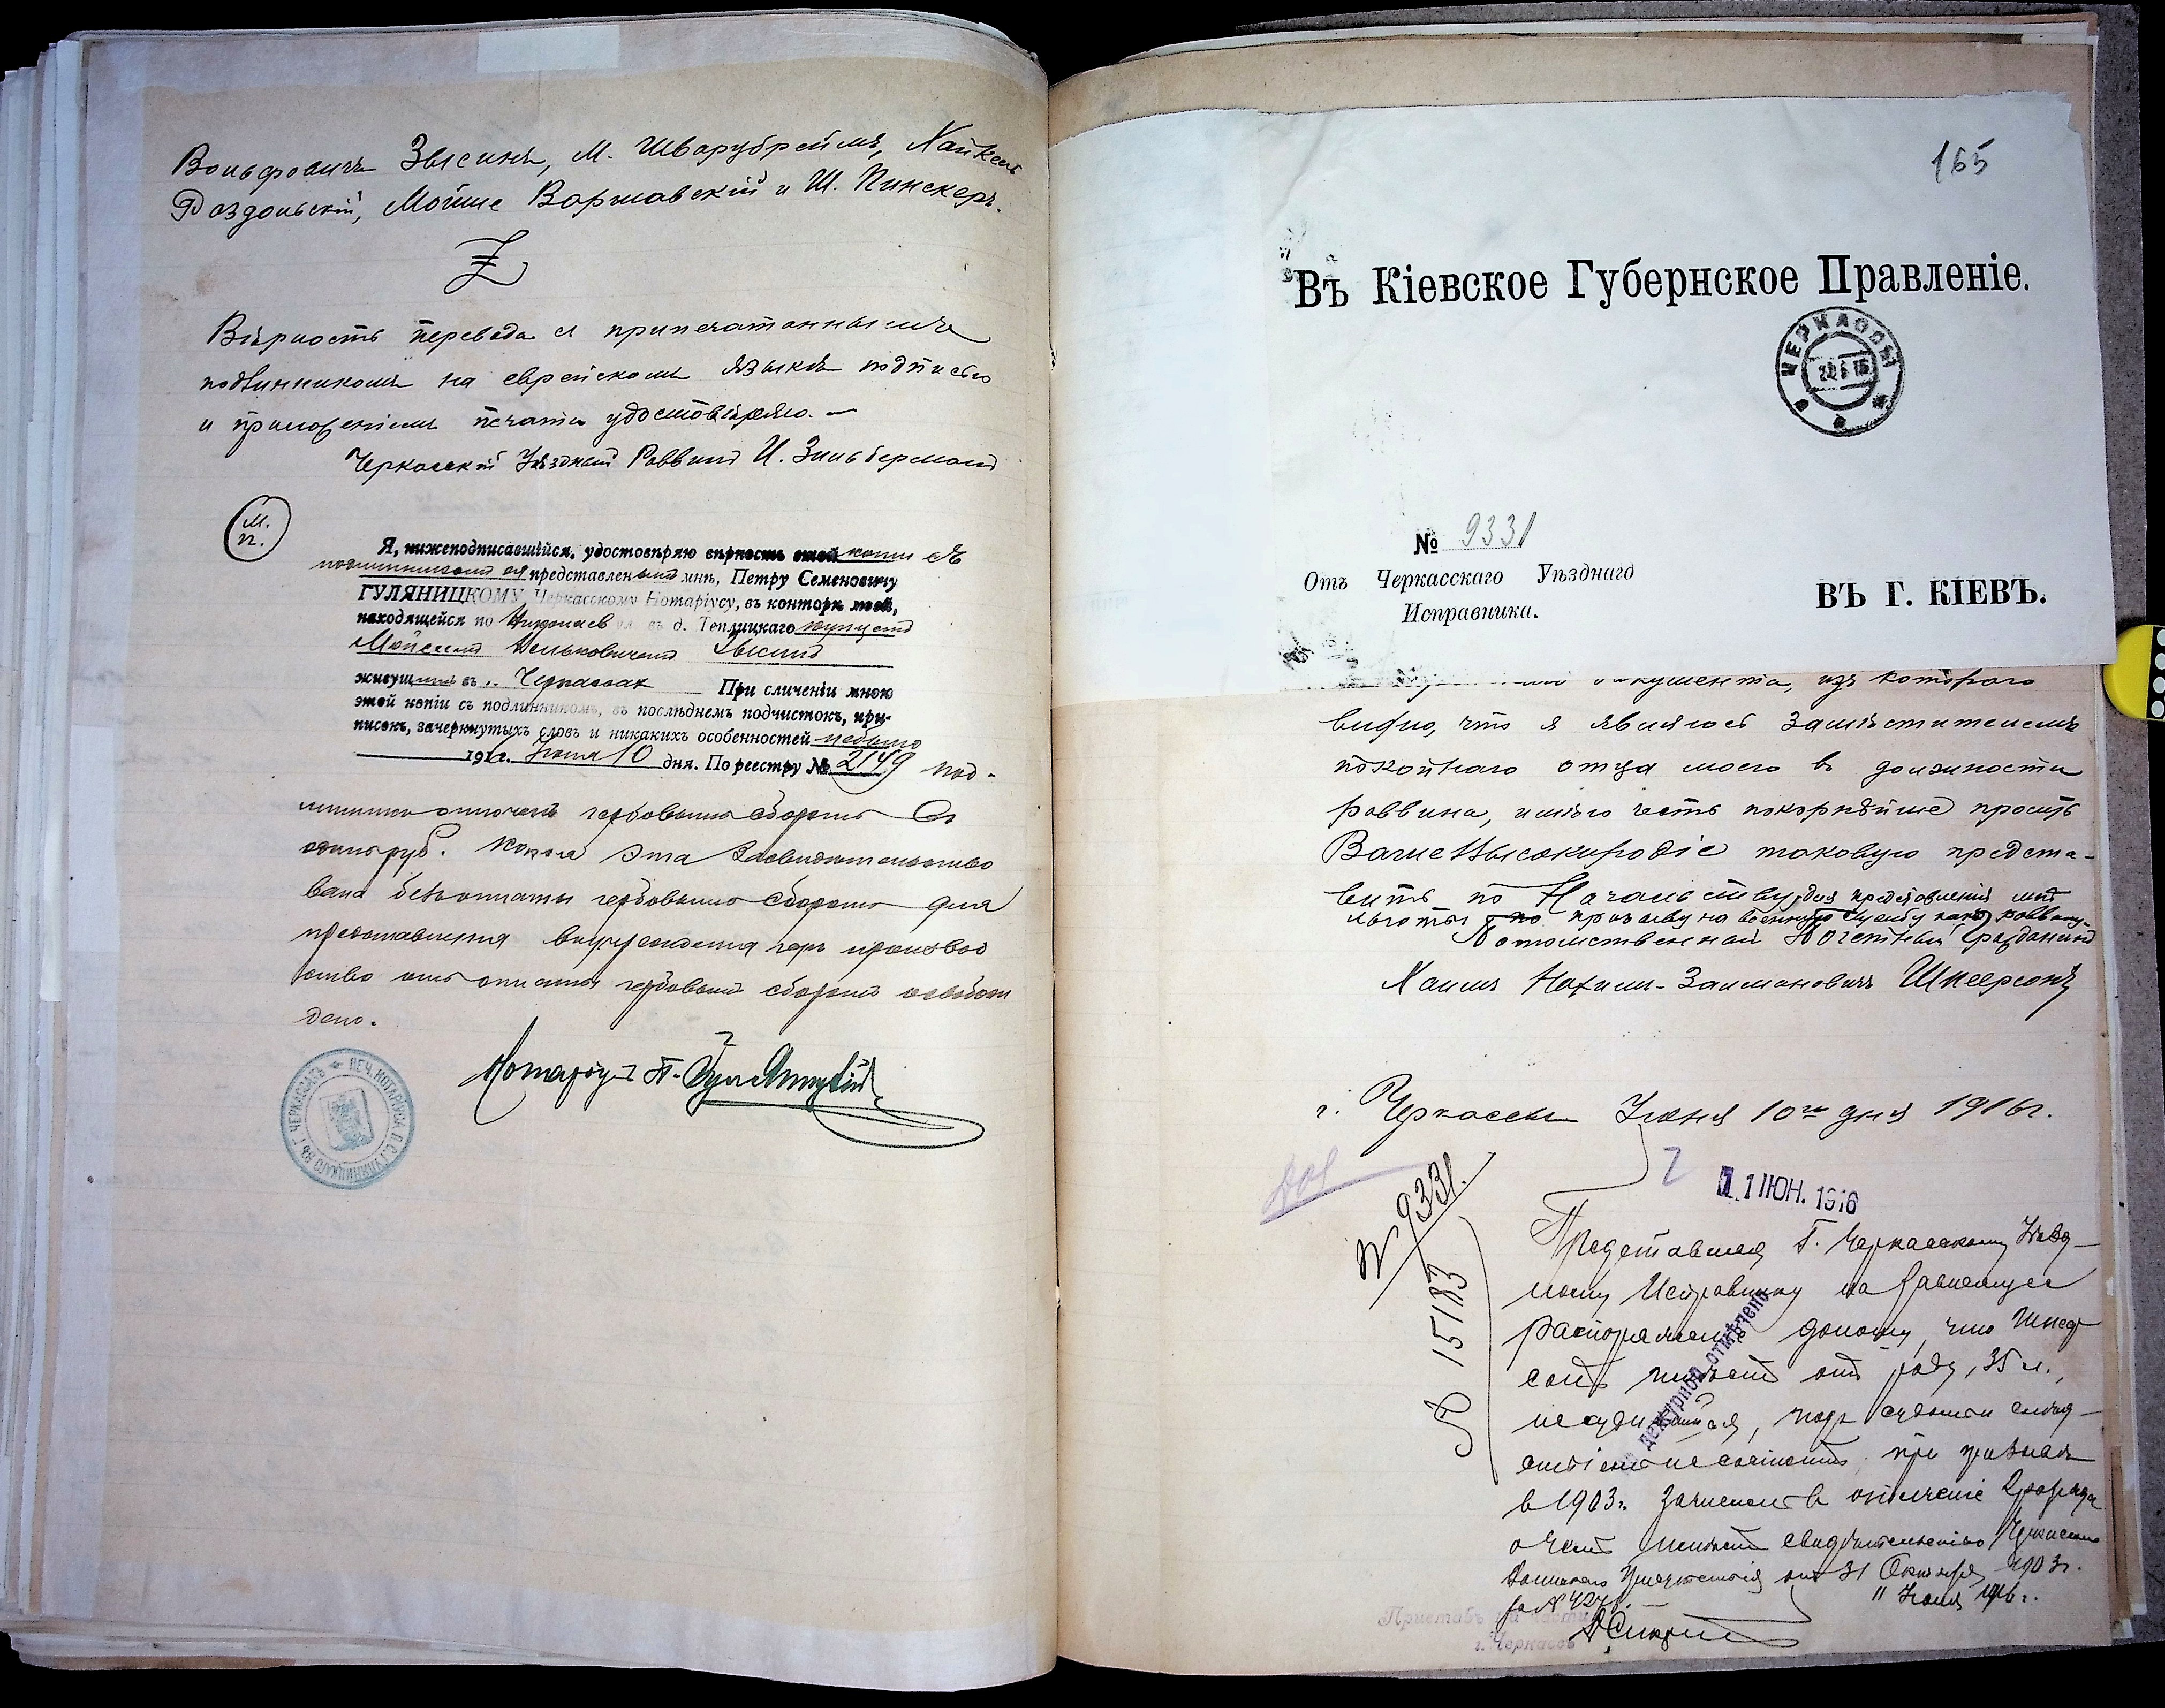 Вольфовичъ Зысинъ, М. Шварцбреймъ, Хайкель
Раздольскій, Мойше Варшавскій и Ш. Пинскеръ.
Вѣрность перевода съ припечатаннымъ
подлинникомъ на еврейскомъ языкѣ подписью
и приложеніемъ печати удостовѣряю. —
Черкасскій Уѣздный Раввинъ И. Зильберманъ
М.
П.
Я, нижеподписавшійся, удостовѣряю вѣрность этой копіи съ
подлинникомъ ея представленымъ мнѣ, Петру Семеновичу
ГУЛЯНИЦКОМУ Черкасскому Нотаріусу, въ конторѣ моей,
находящейся по Николаев ул въ д. Теплицкаго купцомъ
Зысинъ
живущимъ въ г. Черкассах При сличеніи мною
этой копіи съ подлинникомъ, въ послѣднемъ подчистокъ, при-
писокъ, зачеркнутыхъ словъ и никакихъ особенностей небыло
1916 г. Іюня 10 дня. По реестру № 2149 Под-
линникъ оплоченъ гербовымъ сборомъ
одинъ руб. Копія эта засвидѣтельство
вана безъ оплаты гербовымъ сборомъ для
представленія въ учрежденія гдѣ производ
ство отъ оплаты гербовымъ сборомъ освобож
дено.
Нотаріусъ П. Гуляницкій
ПЕЧ. НОТАРІУСА П.С. ГУЛЯНИЦКАГО ВЪ Г. ЧЕРКАССАХЪ
165
Въ Кіевское Губернское Правленіе.
ЧЕРКАССЫ
№ 9331
Отъ Черкасскаго Уѣзднаго
Исправника.
ВЪ Г. КІЕВЪ.
документа, изъ котораго
видно, что я являюсь замѣстителемъ
покойнаго отца моего въ должности
раввина, имѣю честь покорнѣйше просить
Ваше Высокородіе таковую предста-
вить по Начальству, для предоставленія мнѣ
льготы по призыву на военную службу какъ раввину.
Потомственный Почетный Гражданинъ
Хаимъ Нахимъ-Залмановичъ Шнеерсонъ
г. Черкассы Іюня 10го дня 1916 г.
№ 9331.
11 ІЮН. 1916
15183
Представляя Г. Черкасскому Уѣзд-
ному Исправнику на зависящее
распоряженіе доношу, что Шнеер-
сонъ имѣетъ отъ роду 35 л.,
несудившійся, подъ судомъ и слѣд-
ствіемъ не состоитъ, при призывѣ
в 1903 г. зачисленъ въ ополченіе 2 разряда
о чемъ имѣетъ свидѣтельство Черкасскаго
Воинскаго Присутствія отъ 31 Октября 1903 г.
11 Іюня 1916 г.
дежурной отмѣчено
Приставъ части
г. Черкассъ